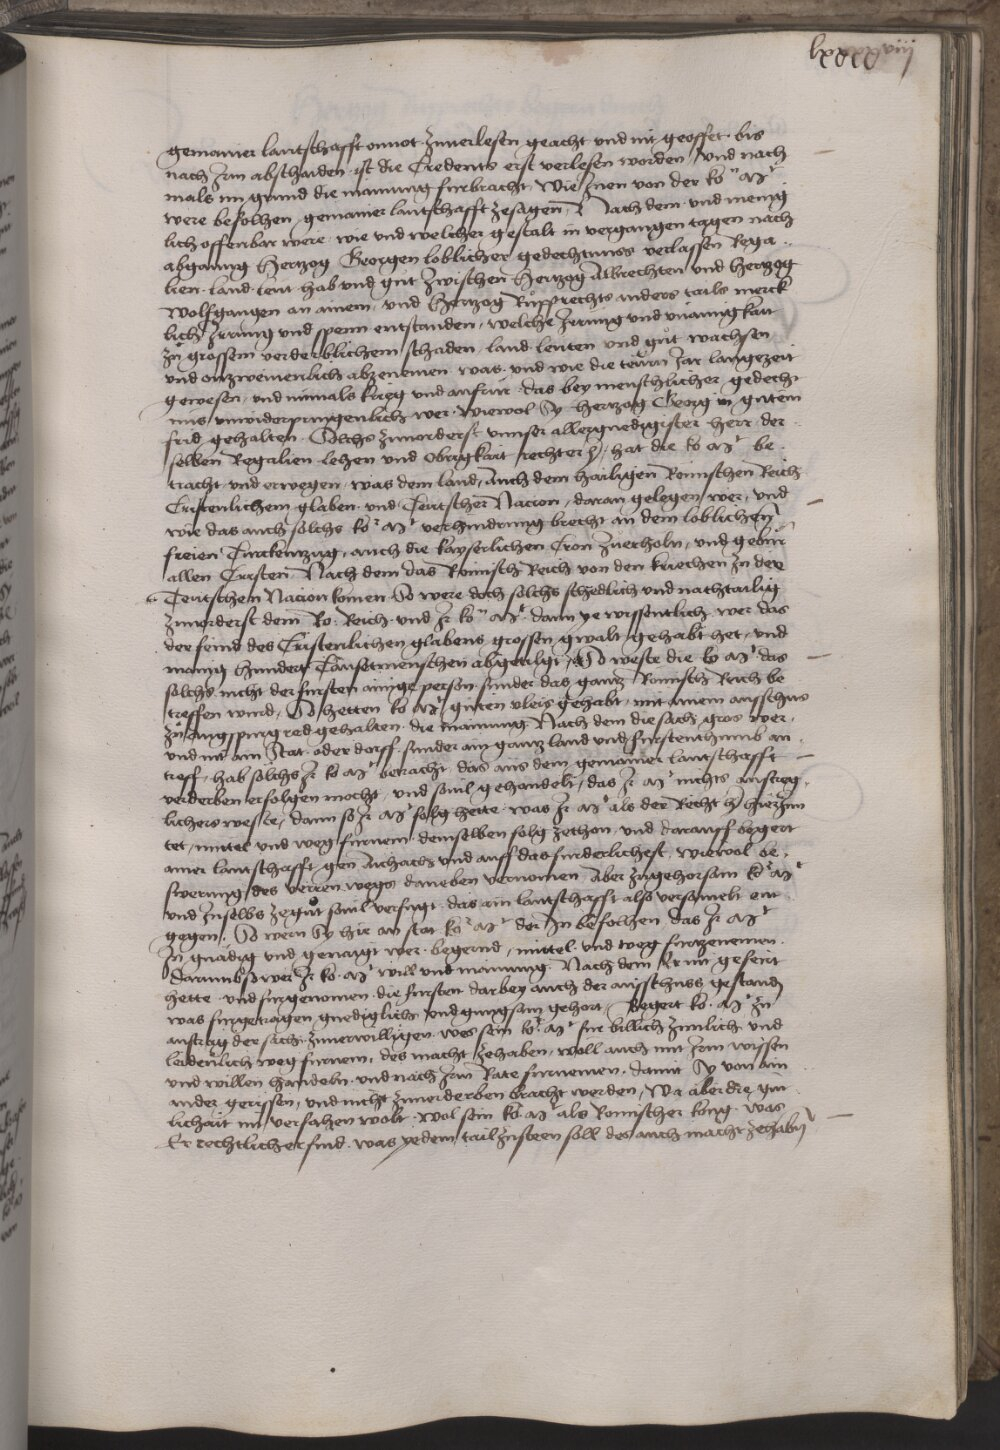 lxxxxviij
gemainer lantschafft onnot zuuerlesen geacht vnd nit geoffet bis
nach Irm abschaiden ist die Credentz erst verlesen worden, vnd nach
mals im grund die mainung furbracht, Wie Inen von der ko n Mt
were befolhen, gemainer lantschafft zesagen, Nach dem vnd menig
lich offenbar were, wie vnd welcher gestalt in vergangen tagen nach
abganng Hertzog Georgen loblicher gedechtnuss verlassen Rega
lien land leut hab vnd gut Zwischen Hertzog Albrechten vnd Hertzog
Wolfgangen an ainem, vnd Hertzog Rupprechts anders tails merck
lich Irrung vnd spenn entstanden, welche Irrung vnd vnainigkait
zu grossem verderblichem schaden, land leuten vnd gut wachsen
vnd onzweiuenlich abzenemen, was vnd wie die teurn Jar langezeit
gewesen, vnd niemals krieg vnd aufrur, das bey menschlicher gedecht
nus vnwidersprngenlich wer, wiewol Sy Hertzog Georg in gutem
frid gehalten, Solchs zuuorderst vnnser allergnedigister herr, der
selben Regalien lehen vnd Obrigkait rechter h, hat die ko Mt be
tracht vnd erwegen, was dem land, auch dem hailigen Romischen Reich
Cristenlichem glaben vnd Teutscher Nacion, daran gelegen wer, vnd
wie das auch solchs ko r Mt verhindrung brecht an dem loblichen
freien Turckenzug, auch die kayserlichen Cron zuerholn, vnd gebur
allen Cristen, Nach dem das Romisch Reich von den kriechen zu der
Teutschen Nacion komen, So were doch solchs schedlich vnd nachtailig
zuuorderst dem Ro. Reich vnd Ir ko n Mt, dann ye wissentlich wer das
der feind des Cristenlichen glabens grossen gwalt gehabt het, vnd
manig hundert Tausetmenschen abgetilgt, So weste die ko Mt das
solchs nicht der fursten ainige person, sunder das gantz Romisch Reich be
treffen wurd, So hetten ko Mt guten vleis gehabt, mit ainem ausschus
zu Augspurg red gehalten, die mainung, Nach dem die sach gros wer,
vnd nit ain Stat oder dorff, sunder ain gantz land vnd furstenthumb an
treff, hab solchs Ir ko Mt betracht, das aus dem gemainer lantschafft
verderben erfolgen mocht, vnd souil gehandelt, das Ir Mt nichts austreg
lichers weste, dann so Ir Mt folg hette, was Ir Mt als der Recht h hierInn
tet, mittel vnd weg furnem, demselben folg zethon, vnd darauff begert
ainer lantschafft gen Aichach vnd auff das furderlichest, wiewol be
swerung des verren wegs daneben vernomen, Aber zugehorsam ko r Mt
vnd Inselbs zegut souil verfugt, das ain lantschafft also versamelt ent
gegen, So wern Sy hie an stat ko r Mt der In befolhen, das Ir Mt
In gnadig vnd genaigt wer, begernd, mittel vnd weg furzenemen,
darumb so wer Ir ko. Mt will vnd mainung, Nach dem Er nu gefeirt
hette, vnd furgenomen, die fursten darbey auch der ausschuss gestand
was furgetragen gnediglich vnd gnugsam gehort, Begert ko. Mt zu
austrag der sach zuuerwilligen, wes sein ko r Mt fur billich zimlich vnd
leidenlich weg furnem, des macht zehaben, woll auch mit Irm wissen
vnd willen handeln, vnd nach Irm Rate furnemen, damit Sy von ain
ander gerissen, vnd nicht zuuerderben bracht werden, Wa aber die gut
lichait nit verfahen wolt, wol sein ko. Mt als Romischer konig, was
Er rechtlicher find, was yedem tail zusteen soll, des auch macht zehabn